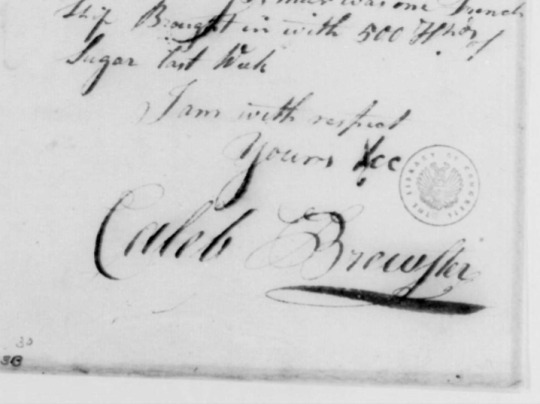 was one French
Ship Brought in with 500 Hhds of
Sugar last Week
I am with respect
Yours &cc
Caleb Brewster
THE LIBRARY OF CONGRESS
30
3B